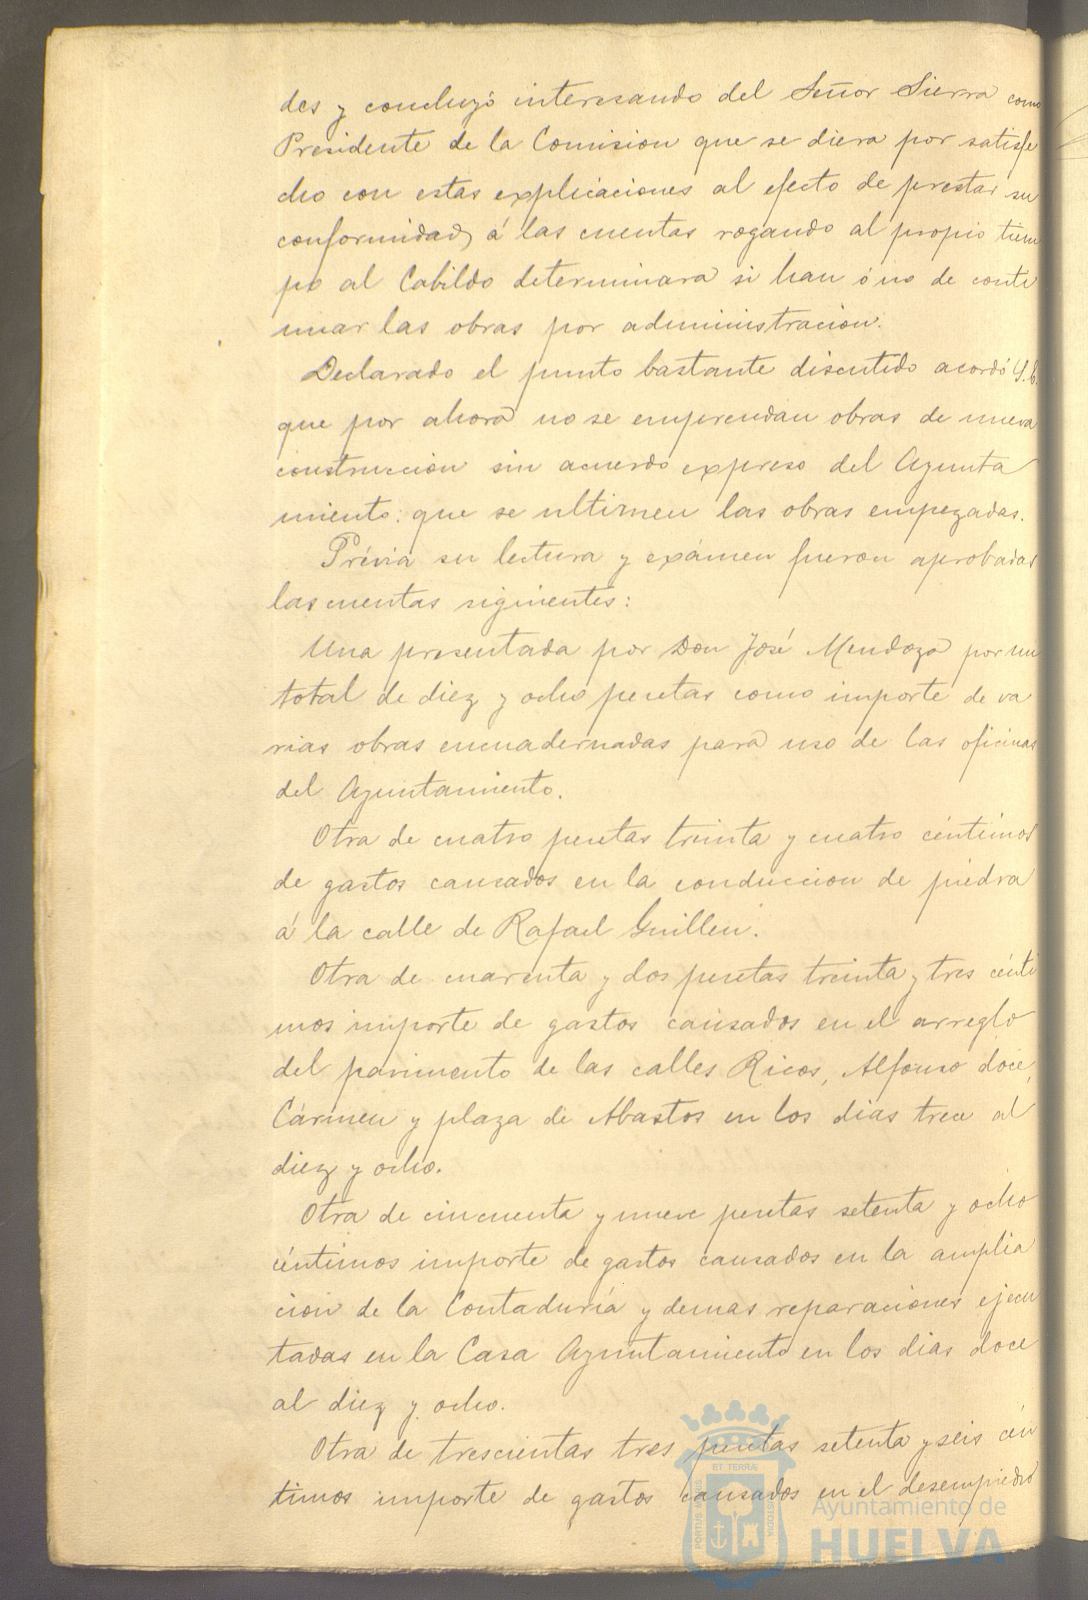 des y concluyó interesando del Señor Sierra como
Presidente de la Comision que se diera por satisfe
cho con estas explicaciones al efecto de prestar su
conformidad á las cuentas rogando al propio tiem
po al Cabildo determinara si han ó no de conti
nuar las obras por administracion.
Declarado el punto bastante discutido acordó S.E.
que por ahora no se emprendan obras de nueva
construccion sin acuerdo expreso del Ayunta
miento: que se ultimen las obras empezadas.
Prévia su lectura y exámen fueron aprobadas
las cuentas siguientes:
Una presentada por Don José Mendoza por un
total de diez y ocho pesetas como importe de va
rias obras encuadernadas para uso de las oficinas
del Ayuntamiento.
Otra de cuatro pesetas treinta y cuatro céntimos
de gastos causados en la conduccion de piedra
á la calle de Rafael Guillen.
Otra de cuarenta y dos pesetas treinta y tres cénti
mos importe de gastos causados en el arreglo
del pavimento de las calles Ricos, Alfonso doce,
Cármen y plaza de Abastos en los dias trece al
diez y ocho.
Otra de cincuenta y nueve pesetas setenta y ocho
céntimos importe de gastos causados en la amplia
cion de la Contaduría y demas reparaciones ejecu
tadas en la Casa Ayuntamiento en los dias doce
al diez y ocho.
Otra de trescientas tres pesetas setenta y seis cén
timos importe de gastos causados en el desempiedro
ET TERRÆ
PORTUS MARIS
CUSTODIA
Ayuntamiento de
HUELVA